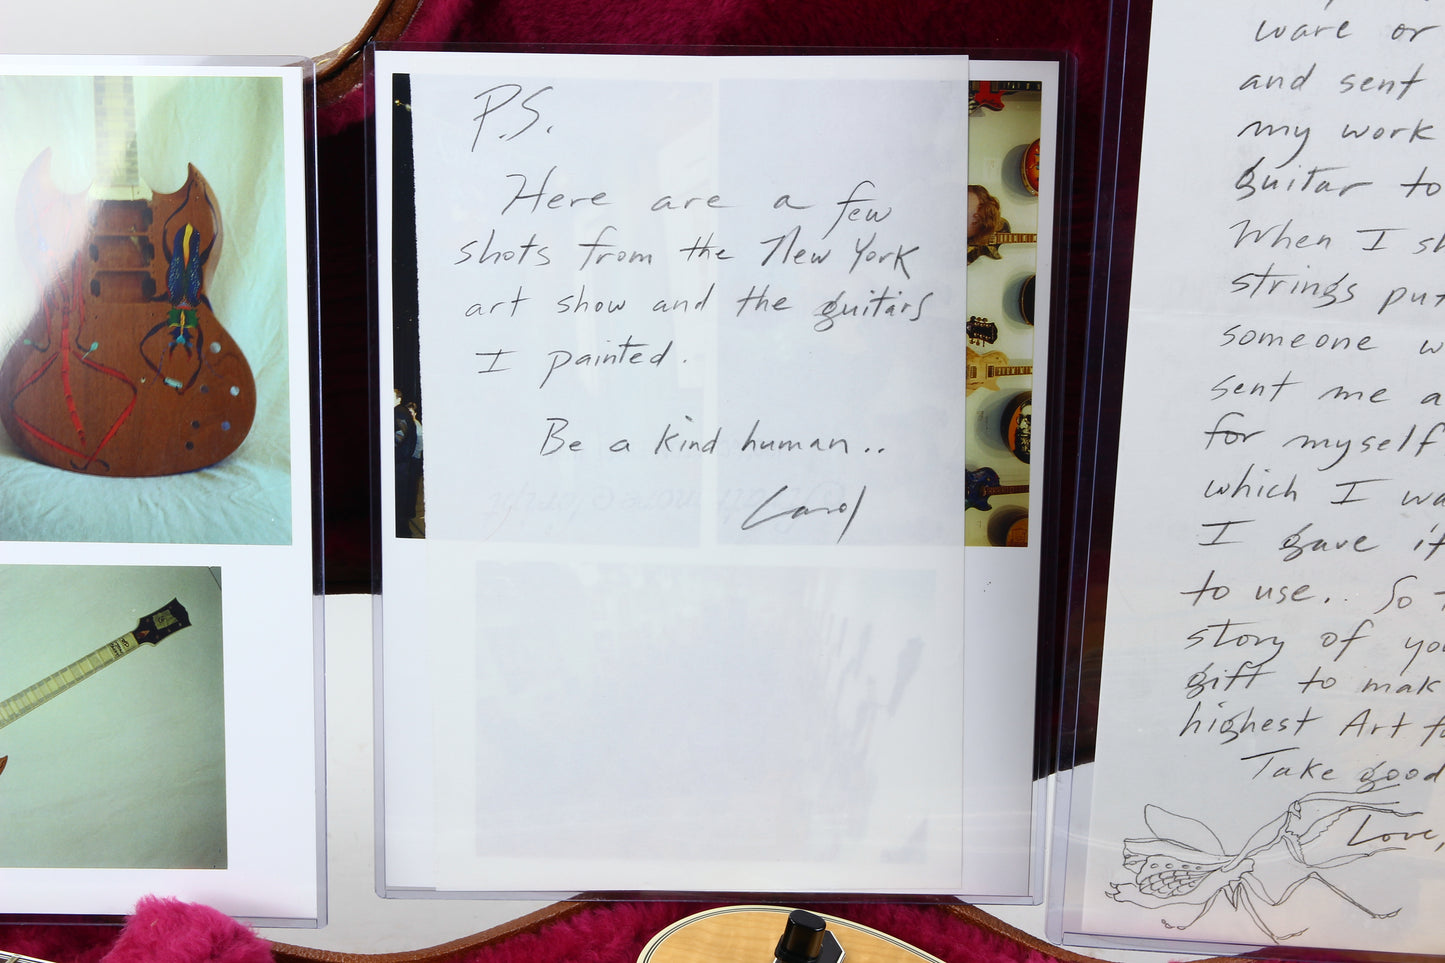 P.S.
Here are a few
shots from the New York
art show and the guitars
I painted.
Be a kind human..
Carol
ware or
and sent
my work
guitar to
When I sh
strings put
someone w
sent me a
for myself
which I wa
I gave it
to use.. So t
story of you
gift to mak
highest Art fo
Take good
Love,